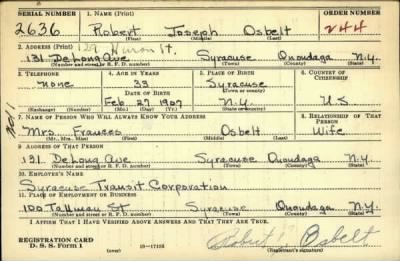 SERIAL NUMBER 1. NAME (Print) ORDER NUMBER
2636 Robert Joseph Osbelt 244
(First) (Middle) (Last)
2. ADDRESS (Print) 129 Huron St.
131 DeLong Ave Syracuse Onondaga N.Y.
(Number and street or R. F. D. number) (Town) (County) (State)
3. TELEPHONE 4. AGE IN YEARS 5. PLACE OF BIRTH 6. COUNTRY OF CITIZENSHIP
none 33 Syracuse
DATE OF BIRTH (Town or county)
Feb. 27 1907 N.Y. U S
(Exchange) (Number) (Mo.) (Day) (Yr.) (State or country)
7. NAME OF PERSON WHO WILL ALWAYS KNOW YOUR ADDRESS 8. RELATIONSHIP OF THAT PERSON
Mrs. Frances Osbelt Wife
(Mr., Mrs., Miss) (First) (Middle) (Last)
9. ADDRESS OF THAT PERSON
131 DeLong Ave Syracuse Onondaga N.Y.
(Number and street or R. F. D. number) (Town) (County) (State)
10. EMPLOYER'S NAME
Syracuse Transit Corporation
11. PLACE OF EMPLOYMENT OR BUSINESS
100 Tallman St Syracuse Onondaga N.Y.
(Number and street or R. F. D. number) (Town) (County) (State)
I AFFIRM THAT I HAVE VERIFIED ABOVE ANSWERS AND THAT THEY ARE TRUE.
REGISTRATION CARD
D. S. S. Form 1 (over) 16—17105 Robert J Osbelt
(Registrant's signature)